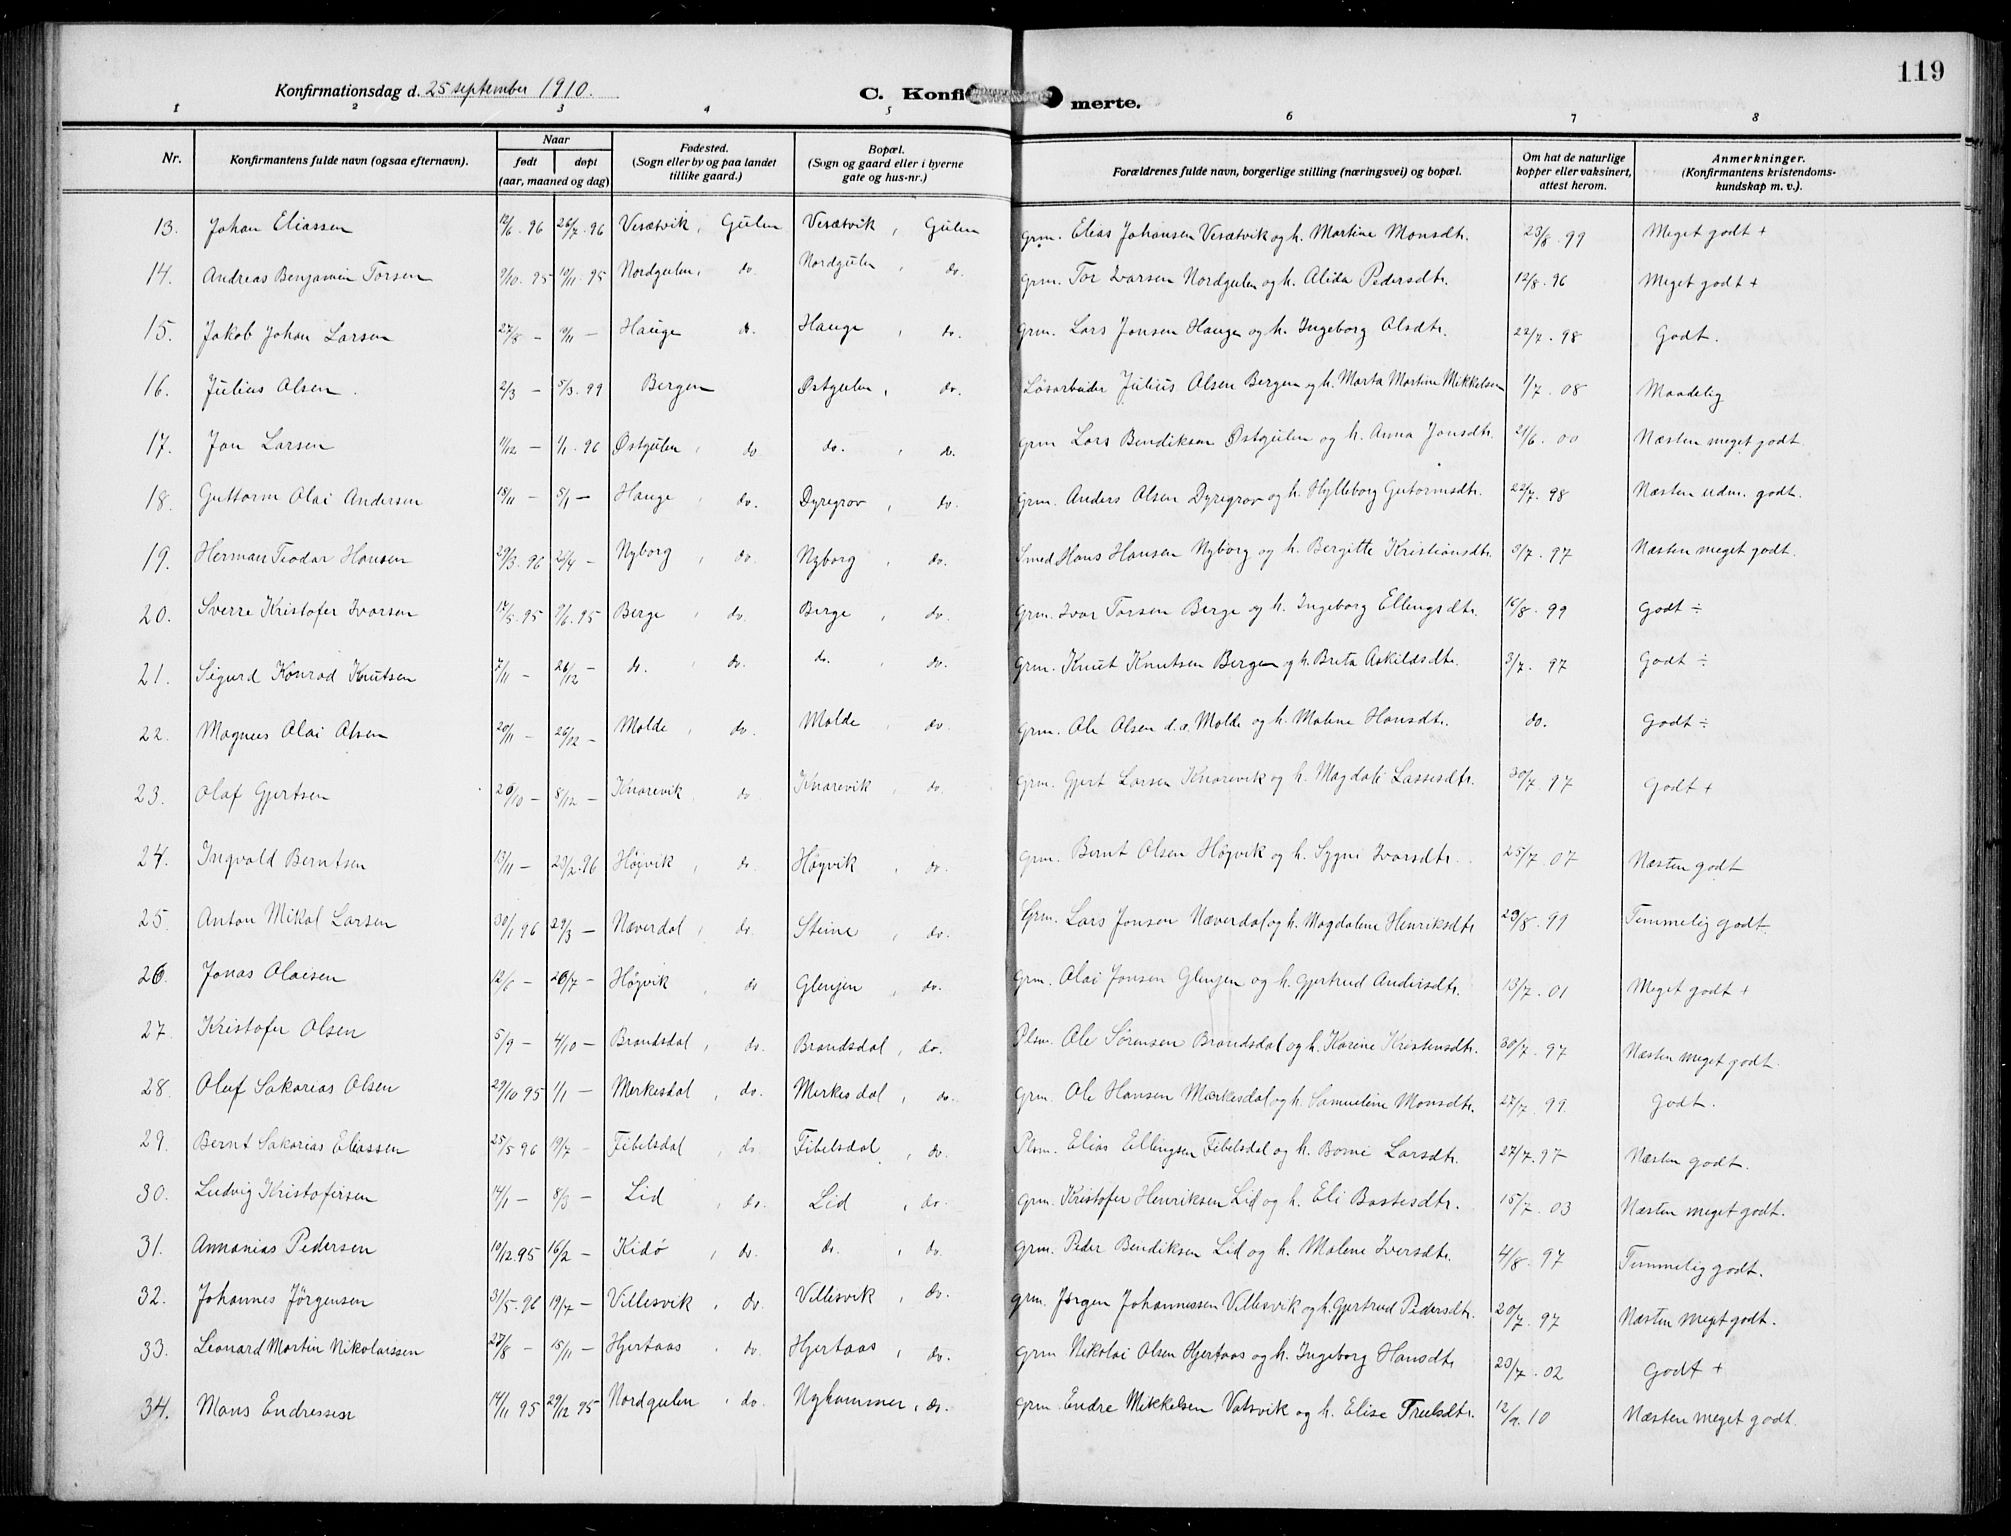 119
Konfirmationsdag d. 25 september 1910.
C. Konfirmerte.
1 2 3 4 5 6 7 8
Nr. Konfirmantens fulde navn (ogsaa efternavn). Naar født døpt (aar, maaned og dag) Fødested. (Sogn eller by og paa landet tillike gaard.) Bopæl. (Sogn og gaard eller i byerne gate og hus-nr.) Forældrenes fulde navn, borgerlige stilling (næringsvei) og bopæl. Om hat de naturlige kopper eller vaksinert, attest herom. Anmerkninger. (Konfirmantens kristendomskundskap m. v.).
13. Johan Eliassen 12/6. 96 26/7. 96 Vesætvik, Gulen Vesætvik, Gulen grm. Elias Johansen Vesætvik og h. Martine Monsdtr. 23/8. 99 Meget godt +
14. Andreas Benjamin Torsen 9/10. 95 10/11. 95 Nordgulen, do. Nordgulen, do. grm. Tor Ivarsen Nordgulen og h. Alida Pedersdtr. 12/8. 96 Meget godt +
15. Jakob Johan Larsen 27/8 - - Hauge do. Hauge, do. grm. Lars Jonsen Haugen og h. Ingeborg Olsdtr. 22/7. 98 Godt.
16. Julius Olsen. 2/3 - 5/3. 99 Bergen Østgulen, do. Løsarbeider Julius Olsen Bergen og h. Marta Martine Mikkelsen 1/7. 08 Maadelig
17. Jon Larsen 11/12 - 1/1. 96 Østgulen, do do., do. grm Lars Bendiksen Østgulen og h. Anna Jonsdtr. 21/6. 00 Næsten meget godt.
18. Guttorm Olai Andersen 18/11 - 5/1 - Hauge, do. Dyregrov, do. grm. Anders Olsen Dyregrov og h. Hylleborg Gutormsdtr. 22/7. 98 Næsten udm. godt.
19. Herman Teodor Hansen 29/3. 96 26/4 - Nyborg, do. Nyborg, do. Smed Hans Hansen Nyborg og h. Bergitte Kristiansdtr. 3/7. 97 Næsten meget godt.
20. Sverre Kristofer Ivarsen 17/5. 95 9/6. 95 Berge, do. Berge, do. grm. Ivar Torsen Berge og h. Ingeborg Ellingsdtr. 16/8. 99 Godt ÷
21. Sigurd Konrad Knutsen 7/11 - 26/12 - do., do. do., do. grm. Knut Knutsen Bergen og h. Breta Askildsdtr. 3/7. 97 Godt ÷
22. Magnus Olai Olsen 20/11 - 26/12 - Molde, do. Molde, do. grm. Ole Olsen d.e. Molde og h. Malene Hansdtr. do. Godt ÷
23. Olaf Gjertsen 26/10 - 8/12 - Knarevik, do Knarevik, do. grm. Gjert Larsen Knarevik og h. Magdali Lassesdtr. 30/7. 97 Godt +
24. Ingvald Berntsen 13/11 - 23/2. 96 Høgvik, do Høgvik, do. grm. Bernt Olsen Høgvik og h. Sygni Ivarsdtr. 25/7. 07 Næsten godt
25. Anton Mikal Larsen 30/1 96 29/3 - Næverdal, do. Steine, do. Grm. Lars Jonsen Næverdal og h. Magdalene Henriksdtr 23/8. 99 Temmelig godt
26. Jonas Olaisen 12/6 - 26/7 - Høgvik, do Glenjen, do. grm. Olai Jonsen Glenjen og h. Gjertrud Andersdtr. 13/7. 01 Meget godt +
27. Kristofer Olsen 5/9 - 4/10 - Brandsdal, do. Brandsdal, do. Plsm. Ole Sørensen Brandsdal og h. Karine Kristensdtr. 30/7. 97 Næsten meget godt.
28. Olaf Sakarias Olsen 29/10 95 1/1 - Merkesdal, do. Merkesdal, do. grm. Ole Hansen Mærkesdal og h. Samueline Monsdtr. 27/7. 99. Godt.
29. Bernt Sakarias Eliassen 25/5 96 19/7 - Fibelsdal, do. Fibelsdal, do. Plsm. Elias Ellingsen Fibelsdal og h. Borni Larsdtr. 27/7. 97 Næsten godt.
30. Ludvig Kristofersen 14/1 - 8/3 - Lid, do. Lid, do. grm. Kristofer Henriksen Lid og h. Eli Bastesdtr. 15/7. 03 Næsten meget godt.
31. Annanias Pedersen 10/12. 95 16/2 - Kidø, do. do., do grm. Peder Bendiksen Lid og h. Malene Iversdtr. 4/8. 97 Temmelig godt.
32. Johannes Jørgensen 31/5. 96 19/7 - Villesvik, do. Villesvik, do. grm. Jørgen Johannessen Villesvik og h. Gjertrud Pedersdtr. 20/7. 97 Næsten meget godt.
33. Leonard Martin Nikolaissen 27/8 - 15/11 - Hjertaas, do Hjertaas, do. grm Nikolai Olsen Hjertaas og h. Ingeborg Hansdtr. 23/7. 02 Godt +
34. Mons Endressen 14/11 95 29/12 95 Nordgulen, do. Nyhammer, do. grm. Endre Mikkelsen Vatsvik og h. Elise Trulsdtr. 12/9. 10 Næsten meget godt.